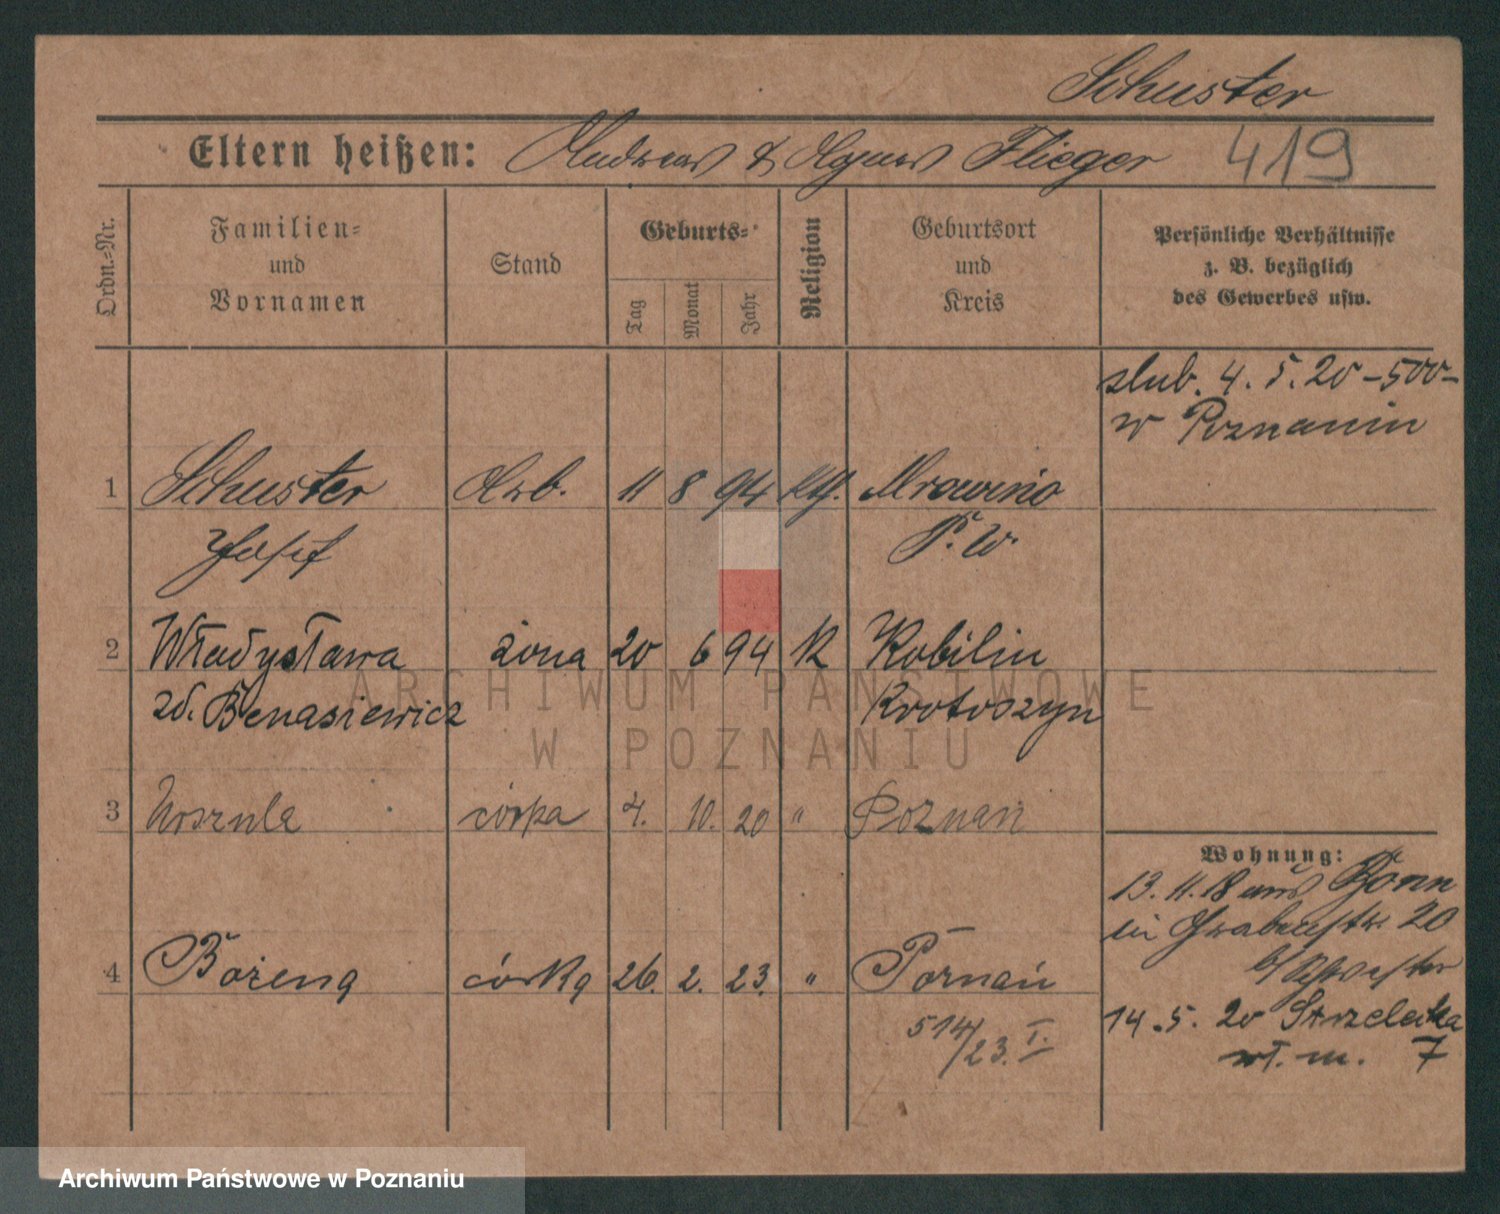 Schuster
Eltern heißen: Andreas & Agnes Flieger 419
Ordn.-Nr.
Familien-
und
Vornamen
Stand
Geburts-
Tag
Monat
Jahr
Religion
Geburtsort
und
Kreis
Persönliche Verhältnisse
z. B. bezüglich
des Gewerbes usw.
slub. 4. 5. 20 – 500 –
w Poznaniu
1 Schuster Arb. 11 8 94 kth. Mrowino
Josef P. W.
2 Władysława żona 20 6 94 K Kobilin
zd. Benasiewicz Krotoszyn
3 Urszula córka 4. 10. 20 " Poznań
Wohnung:
13. 11. 18 aus Bonn
in Grabenstr. 20
b/Schwester
4 Bożena córka 26. 2. 23. " Poznań
514/23. I.
14. 5. 20 Strzelecka
wł. m. 7
ARCHIWUM PAŃSTWOWE
W POZNANIU
Archiwum Państwowe w Poznaniu